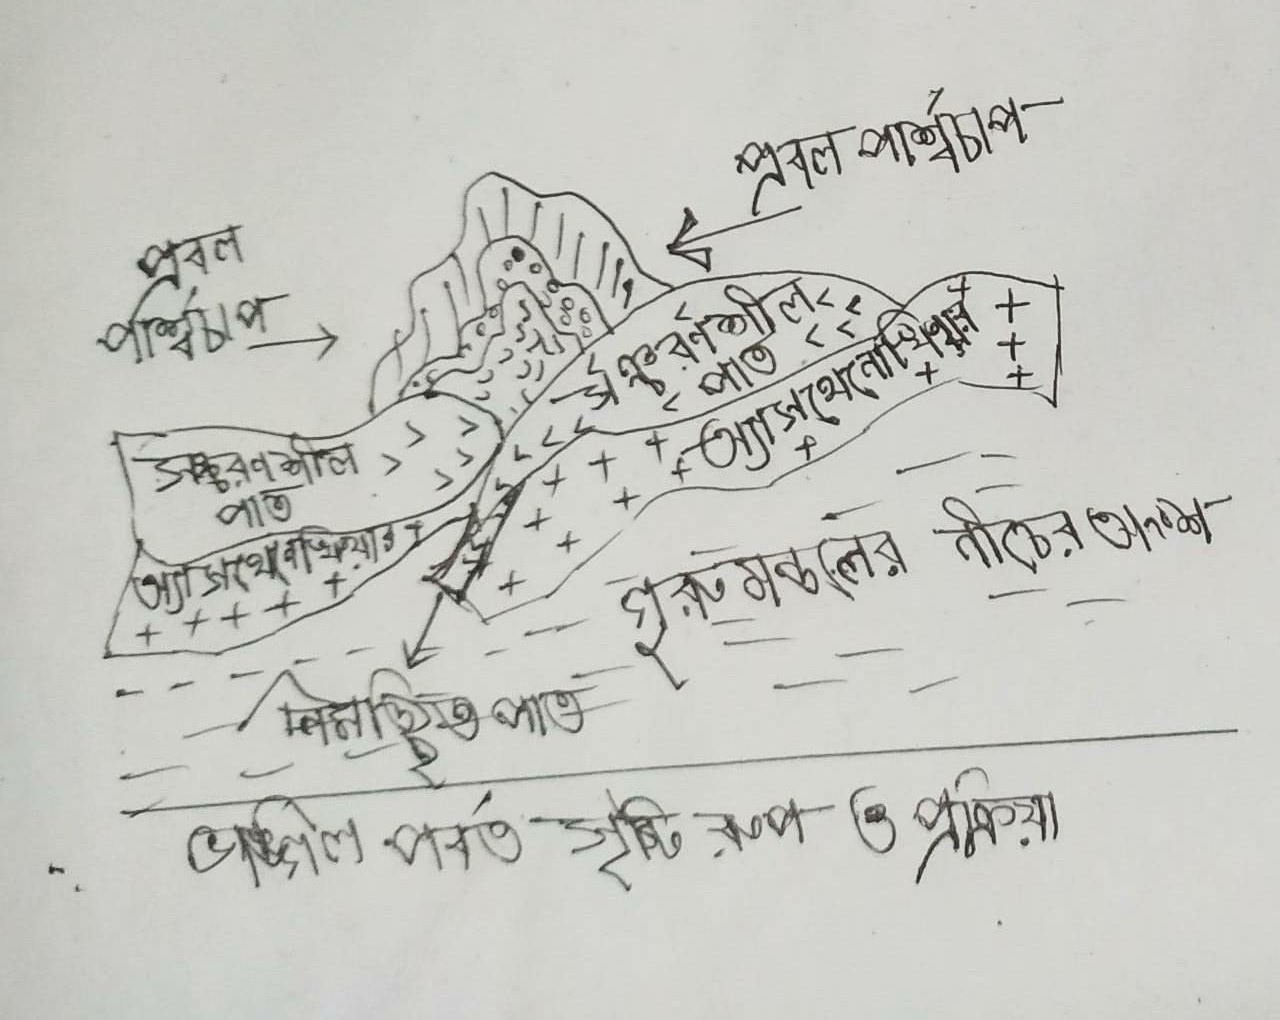 প্রবল পার্শ্বচাপ
প্রবল
পার্শ্বচাপ
সঞ্চরণশীল
পাত
অ্যাসথেনোস্ফিয়ার
সঞ্চরণশীল
পাত
অ্যাসথেনোস্ফিয়ার
গুরুমন্ডলের নীচের অংশ
নিমজ্জিত পাত
ভঙ্গিল পর্বত সৃষ্টি রূপ ও প্রক্রিয়া